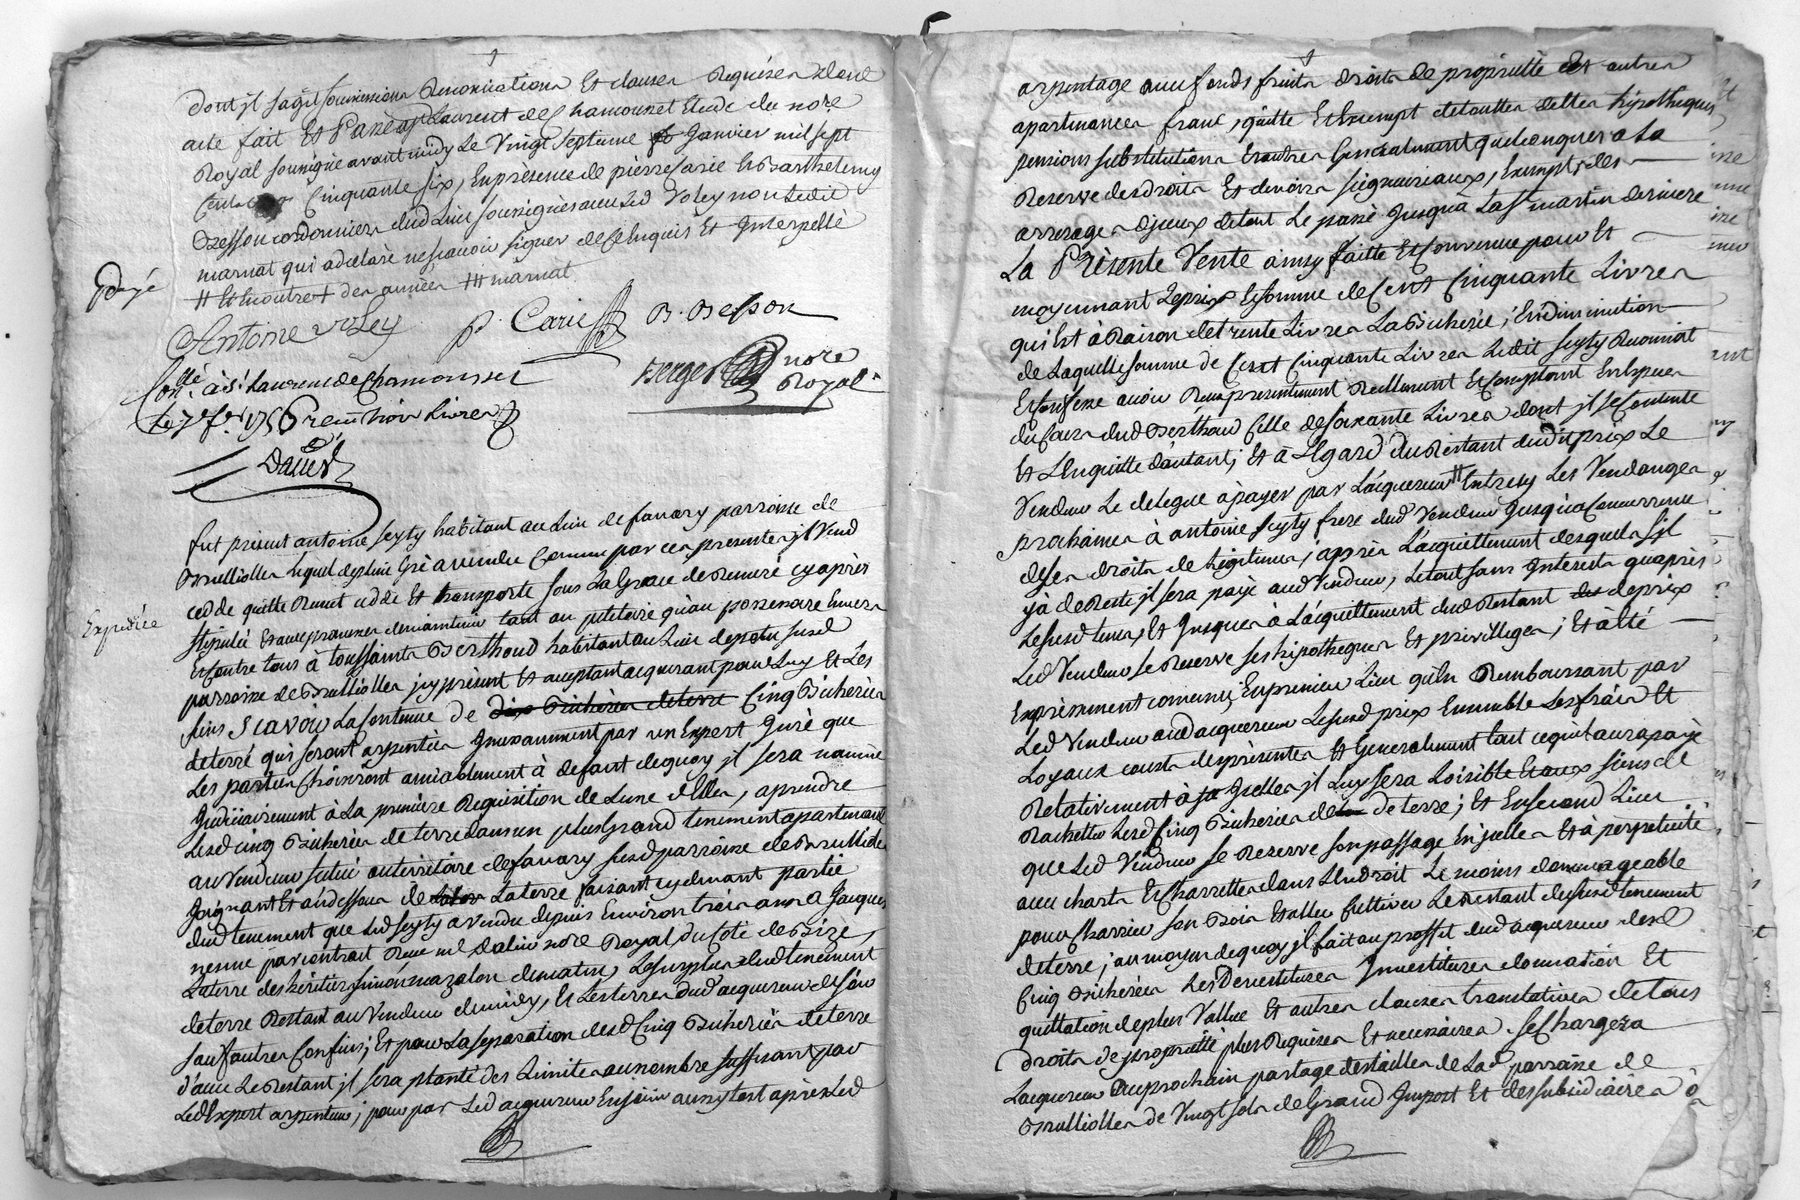 dont il sagit soumissions Renonciations Et clauses Requises dont
acte fait Et Passé a St Laurent de Chamousset Etude du nore
Royal soussigné avant midy Le Vingt septieme Janvier mil sept
Cent Cinquante six, En présence de pierre Carie Et Barthelemy
Besson cordonniers dud Lieu soussignés avec Led Voley non Ledit
marnat qui a déclaré ne scavoir signer de ce Enquis Et Interpellé
# Et En outre + des années ## marnat
Expédié
Antoine Voley P. Carie B. Besson
Conllé à St Laurens de Chamousset Berger nore
Le 7e fer 1756 reçu trois Livres Royal
Dauer
fut présent antoine seyty habitant au Lieu de favary parroisse de
Brulliolles Lequel de plein Gré a vendu Comme par ces presentes il Vend
cedde quitte Remet cedde Et transporte sous La Grace de Remeré cy après
Expédiée
stipulée Et avec promesse de maintenir tant au petitoire qu'au possessoire Envers
Et Contre tous à toussaint Berthoud habitant au Lieu de potu susd
parroisse de Brulliolles icy présent Et acceptant acquerant pour Luy Et Les
siens Scavoir La Contenue de dix Bicherées de terre Cinq Bicherées
de terre qui seront arpentées Incessamment par un Expert Juré que
Les parties Choisiront amiablement à defaut de quoy il sera nommé
Judiciairement à La première Requisition de Lune d'Elles, a prendre
Lesd cinq Bicherées de terre dans un plus Grand tenement apartenant
au Vendeur situé au territoire de favary susd parroisse de Brulliolles
Joignant Et au dessous de La terre faisant cy devant partie
dud tenement que Led seyty a vendu depuis Environ trois ans a Jacques
par contrat Reçu me Dalin nore Royal du Coté de Bize,
La terre des héritiers simon mazalon de matin, Le surplus dud tenement
de terre Restant au Vendeur de midy, Et Les terres dud acquereur de soir
sauf autres Confins; Et pour La separation desd Cinq Bicherées de terre
d'avec Le Restant il sera planté des Limites au nombre suffisant par
Led Expert arpenteur; pour par Led acquereur En jouir aussytost après Led
arpentage avec fonds fruits droits de propriété Et autres
apartenances franc, quitte Et Exempt de touttes dettes hipotheques
pensions substitutions Et autres Generalement quelconques a La
Reserve des droits Et devoirs seigneuriaux, Exempt, des
arrerages d'jceux de tout Le passé Jusqu'a La St martin derniere
La Présente Vente ainsy faitte Et Convenue pour Et
moyennant Le prix Et somme de Cent Cinquante Livres
qui Est à Raison de trente Livres La Bicherée; En diminution
de Laquelle somme de Cent Cinquante Livres Ledit seyty Reconnoit
Et Confesse avoir Reçu presentement Reellement Et Comptant En Especes
du Cours dud Berthoud Celle de soixante Livres dont il se Contente
Et L'En quitte d'autant; Et à L'Egard du Restant dudit prix Le
Vendeur Le delegue à payer par L'acquereur Entre cy Les Vendanges
prochaines à antoine seyty frere dud Vendeur Jusqu'a Concurrence
de ses droits de Legitimes; après L'acquittement desquels s'jl
y à de Reste il sera payé aud Vendeur, Le tout sans Interests qu'après
Led terme; Et Jusques à L'acquittement dud Restant de prix
Led Vendeur se Reserve ses hipotheques Et privilleges; Et à Eté
Expressement convenu En premier Lieu qu'En Remboursant par
Led Vendeur aud acquereur Le susd prix Ensemble Les frais Et
Loyaux cousts des présentes Et Generalement tout ce qu'il aura payé
Relativement à jcelles il Luy sera Loisible Et aux siens de
Rachetter Lesd Cinq Bicherées de terre; Et En second Lieu
que Led Vendeur se Reserve son passage En jcelles Et à perpetuité
avec chars Et Charrettes dans L'Endroit Le moins domageable
pour Charrier son Bois Et aller Cultiver Le Restant du susd tenement
de terre; au moyen de quoy il fait au proffit dud acquereur desd
Cinq Bicherées Les Devestitures Investitures donnation Et
quittation de plus Vallue Et autres clauses translatives de tous
droits de propriété plus Requises Et necessaires. se Chargera
L'acquereur au prochain partage des tailles de Lad parroisse de
Brulliolles de Vingt sols de Grand Impost Et des subsidiaires à